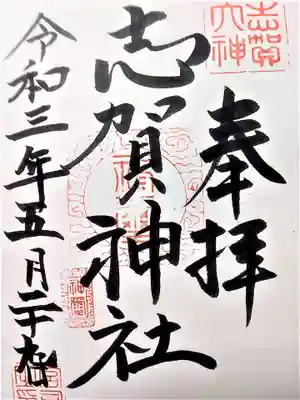 奉拝
志賀神社
令和三年五月二十九日
志賀大神